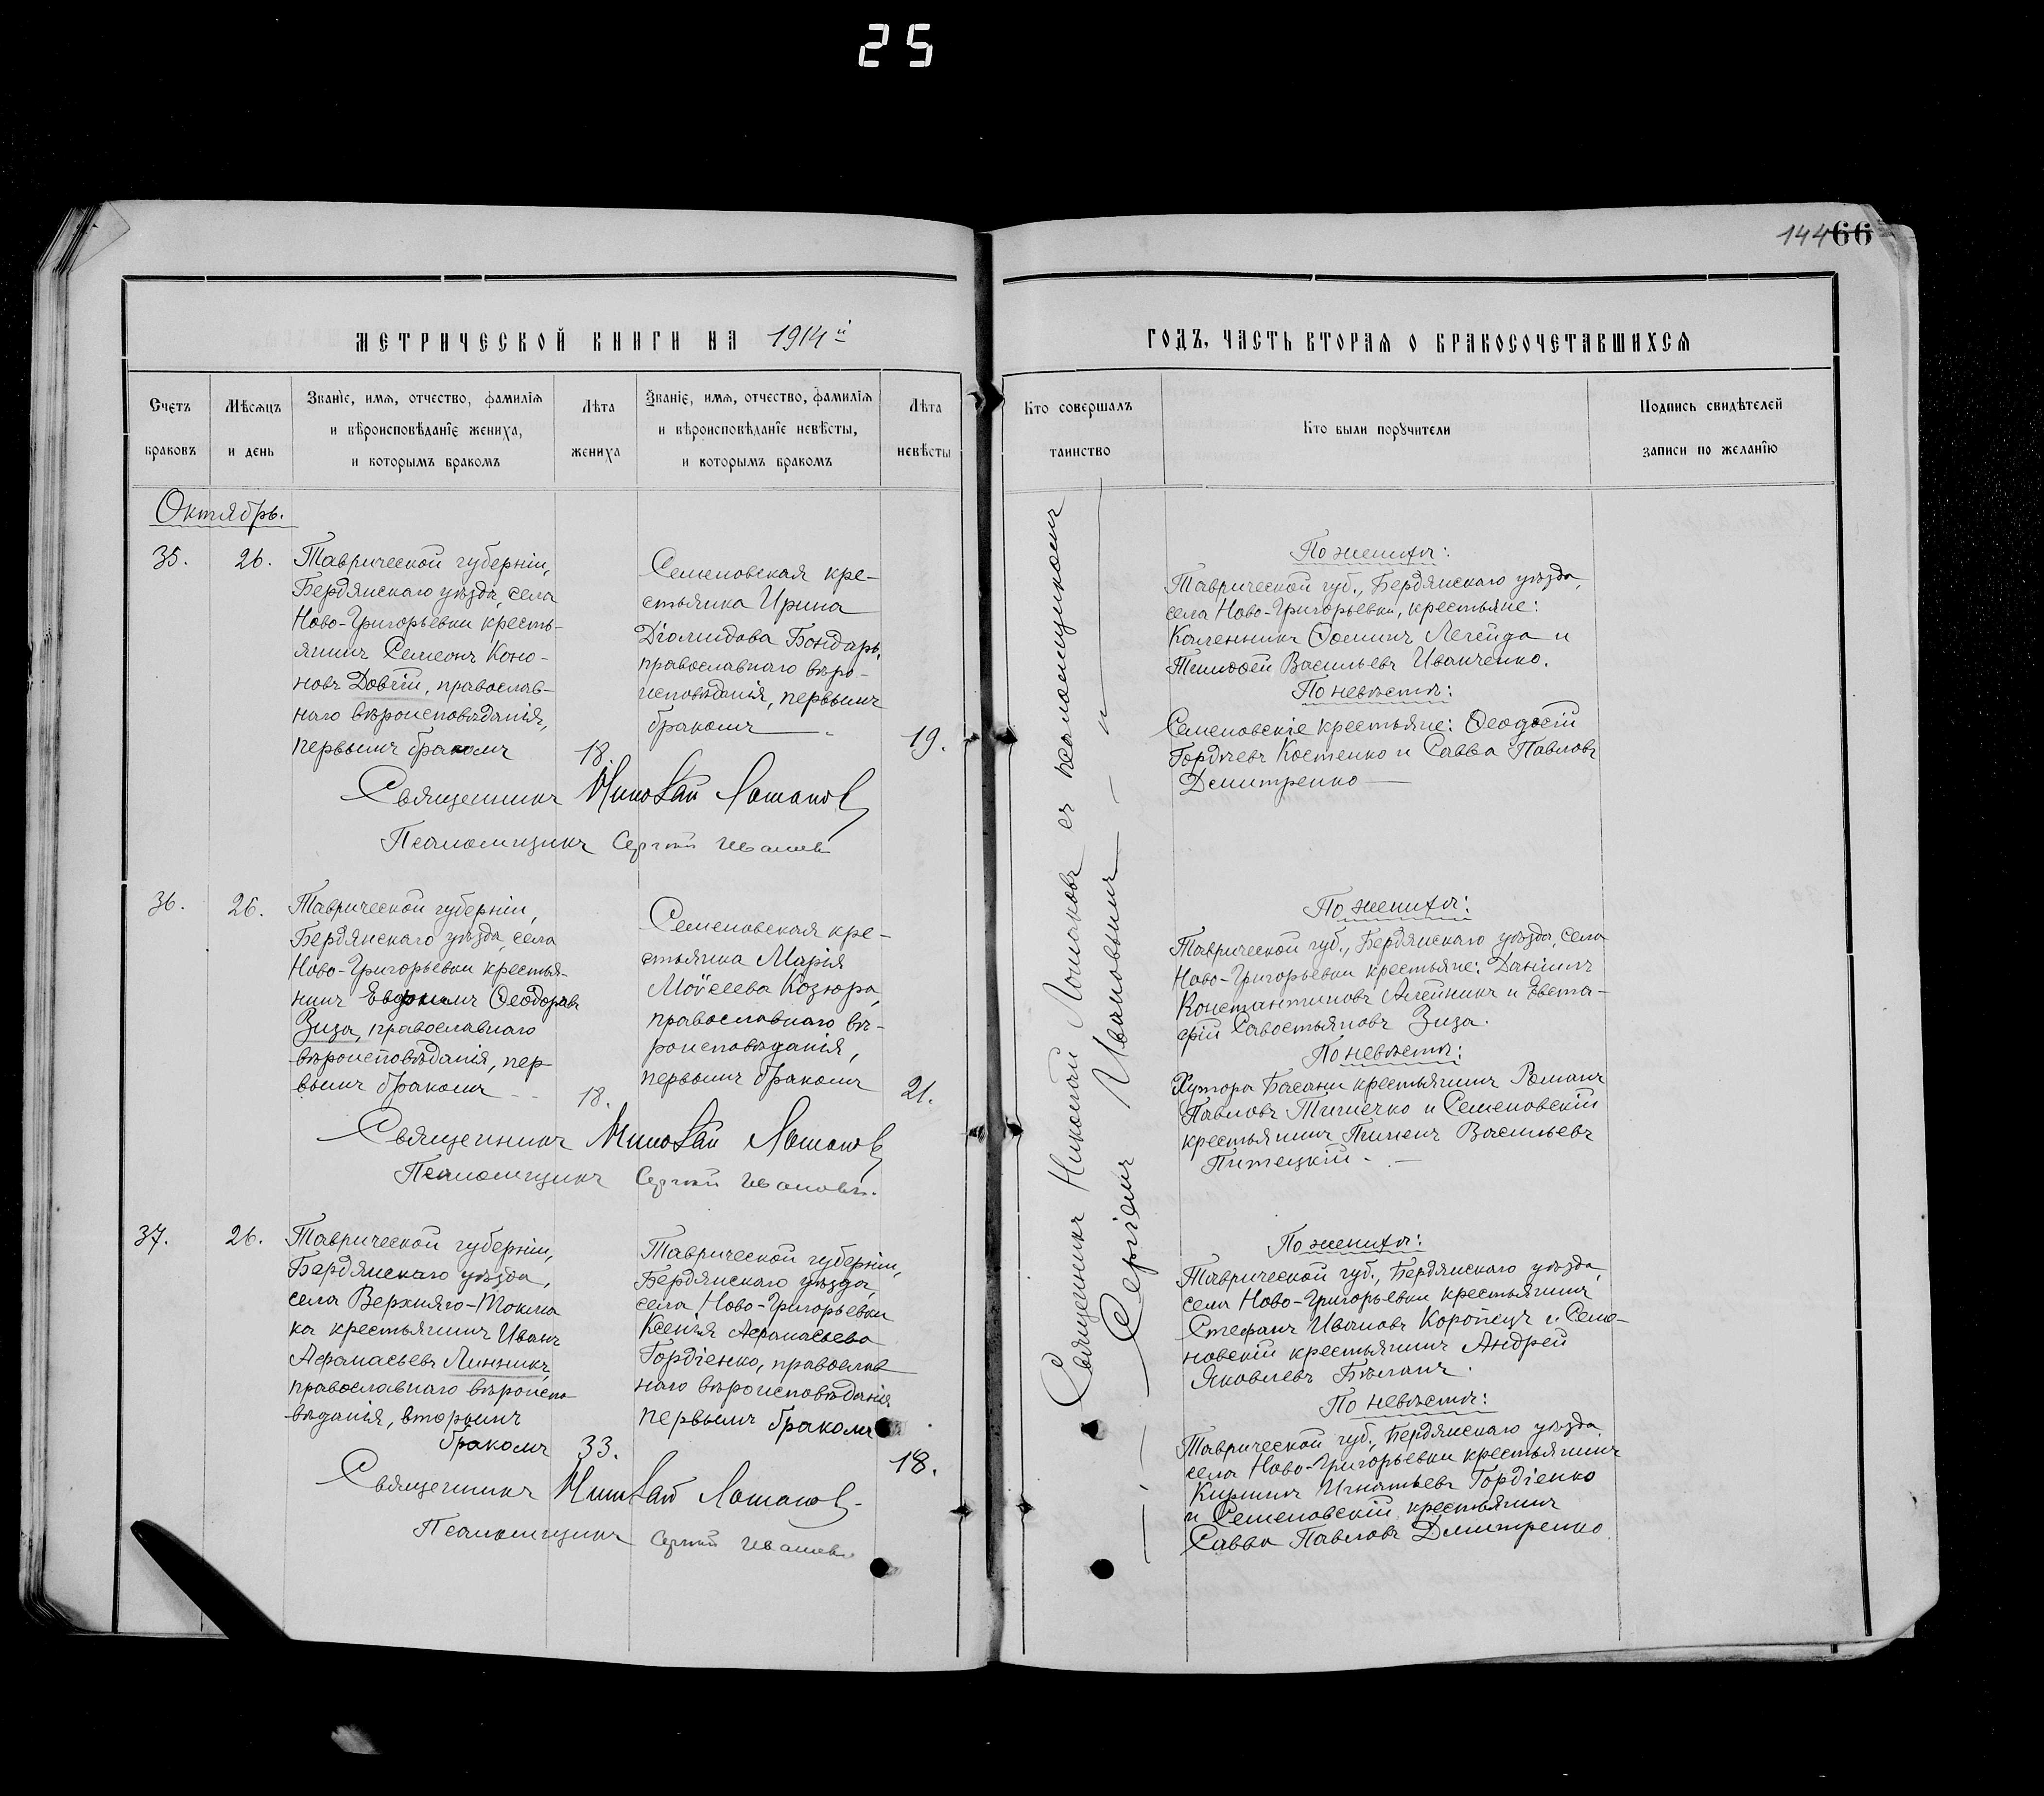 25
144 66
МЕТРИЧЕСКОЙ КНИГИ НА 1914й
ГОДЪ, ЧАСТЬ ВТОРАЯ О БРАКОСОЧЕТАВШИХСЯ
Счетъ браковъ
Мѣсяцъ и день
Званіе, имя, отчество, фамилія
и вѣроисповѣданіе жениха,
и которымъ бракомъ
Лѣта жениха
Званіе, имя, отчество, фамилія
и вѣроисповѣданіе невѣсты,
и которымъ бракомъ
Лѣта невѣсты
Кто совершалъ таинство
Кто были поручители
Подпись свидѣтелей
записи по желанію
Октябрь.
35.
26.
Таврической губерніи,
Бердянскаго уѣзда, села
Ново-Григорьевки кресть-
янинъ Семеонъ Коно-
новъ Довгій, православ-
наго вѣроисповѣданія,
первымъ бракомъ
18.
Семеновская кре-
стьянка Ирина
Діомидова Бондарь,
православнаго вѣро-
исповѣданія, первымъ
бракомъ
19.
Священникъ Николай Ломаковъ
Псаломщикъ Сергій Ивановъ
По женихѣ:
Таврической губ., Бердянскаго уѣзда,
села Ново-Григорьевки, крестьяне:
Каленникъ Ѳоминъ Легейда и
Тимоѳей Васильевъ Иванченко.
По невѣстѣ:
Семеновскіе крестьяне: Ѳеодосій
Гордѣевъ Костенко и Савва Павловъ
Дмитренко
36.
26.
Таврической губерніи,
Бердянскаго уѣзда, села
Ново-Григорьевки крестья-
нинъ Евдокимъ Ѳеодоровъ
Зиза, православнаго
вѣроисповѣданія, пер
вымъ бракомъ
18.
Семеновская кре-
стьянка Марія
Моѵсеева Козюра,
православнаго вѣ-
роисповѣданія,
первымъ бракомъ
21.
Священникъ Николай Ломаковъ
Псаломщикъ Сергій Ивановъ.
По женихѣ:
Таврической губ., Бердянскаго уѣзда, села
Ново-Григорьевки крестьяне: Даніилъ
Константиновъ Алейникъ и Евста-
фій Савостьяновъ Зиза.
По невѣстѣ:
Хутора Басани крестьянинъ Романъ
Павловъ Тимечко и Семеновскій
крестьянинъ Пименъ Васильевъ
Питецкій.
37.
26.
Таврической губерніи,
Бердянскаго уѣзда,
села Верхняго-Токма
ка крестьянинъ Иванъ
Афанасьевъ Линникъ,
православнаго вѣроиспо
вѣданія, вторымъ
бракомъ
33.
Таврической губерніи,
Бердянскаго уѣзда,
села Ново-Григорьевки
Ксенія Афанасьева
Гордіенко, православ
наго вѣроисповѣданія
первымъ бракомъ
18.
Священникъ Николай Ломаковъ
Псаломщикъ Сергій Ивановъ
По женихѣ:
Таврической губ., Бердянскаго уѣзда,
села Ново-Григорьевки крестьянинъ
Стефанъ Ивановъ Коропецъ и Семе-
новскій крестьянинъ Андрей
Яковлевъ Бѣланъ.
По невѣстѣ:
Таврической губ., Бердянскаго уѣзда,
села Ново-Григорьевки крестьянинъ
Кириллъ Игнатьевъ Гордіенко
и Семеновскій крестьянинъ
Савва Павловъ Дмитренко.
Священникъ Николай Ломаковъ съ псаломщикомъ
Сергіемъ Ивановымъ